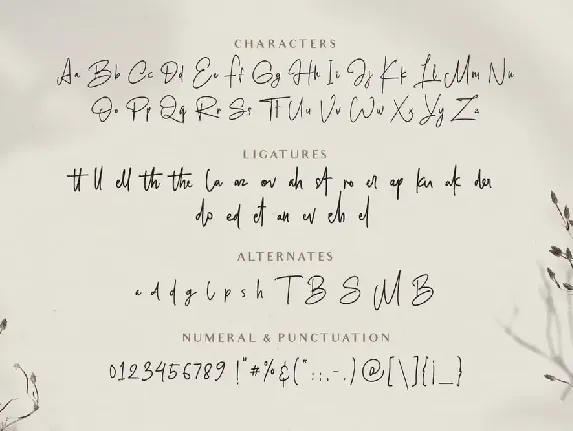 CHARACTERS
Aa Bb Cc Dd Ee Ff Gg Hh Ii Jj Kk Ll Mm Nn
Oo Pp Qq Rr Ss Tt Uu Vv Ww Xx Yy Zz
LIGATURES
tt ll ell th the la az ov ah st ro er ap kn ak der
do ed et an ev eh el
ALTERNATES
a d d g l p s h T B S M B
NUMERAL & PUNCTUATION
0123456789 !"#%&("::,-.)@[\]{|_}